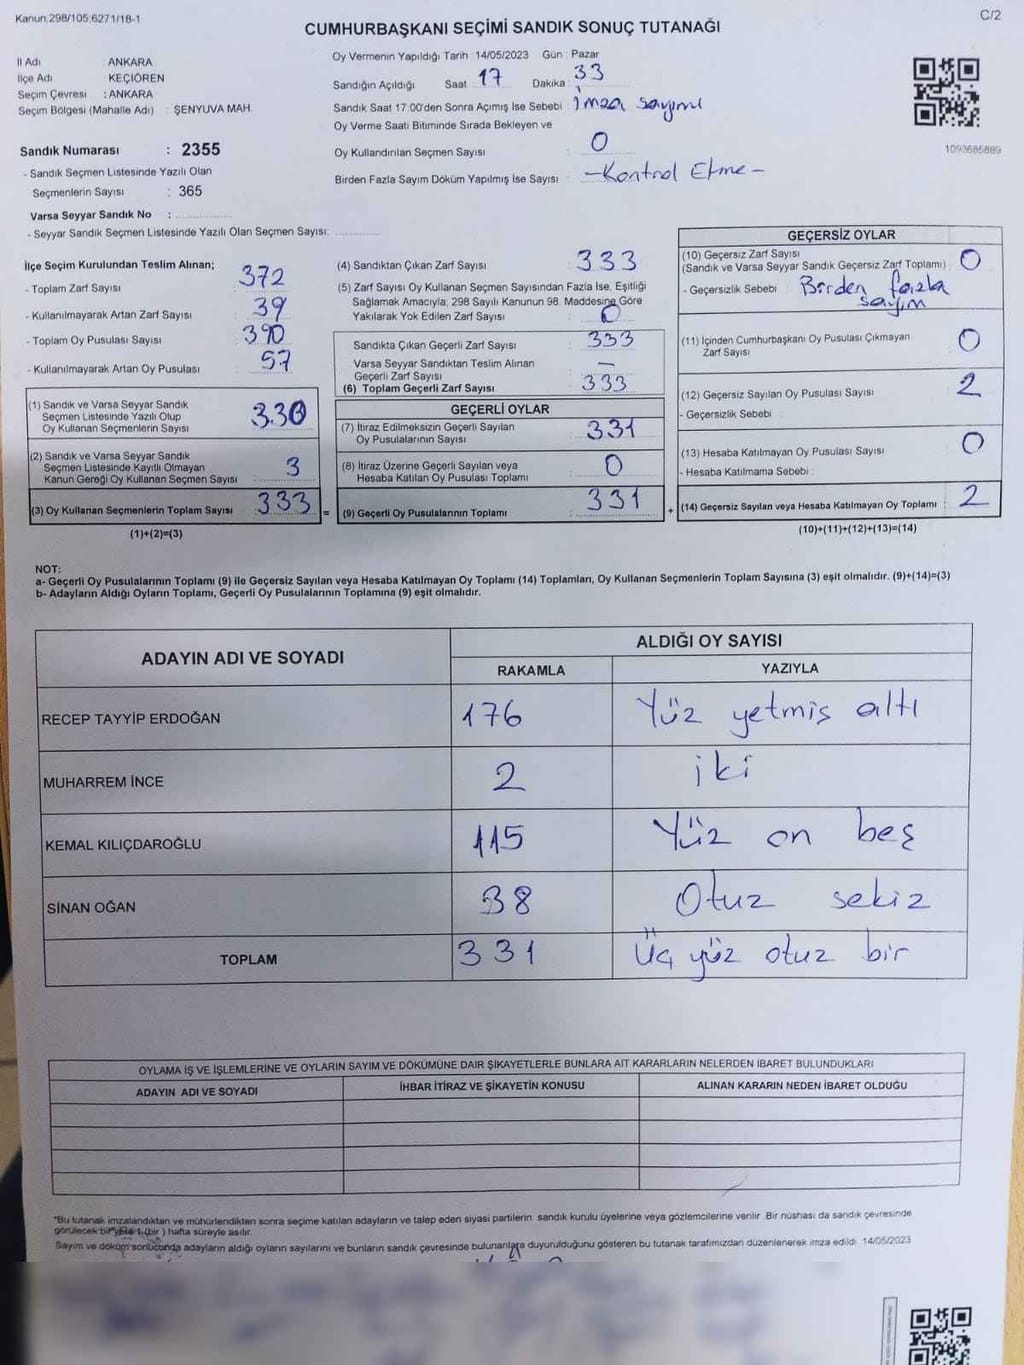 Kanun:298/105;6271/18-1
C/2
CUMHURBAŞKANI SEÇİMİ SANDIK SONUÇ TUTANAĞI
İl Adı : ANKARA
İlçe Adı : KEÇİÖREN
Seçim Çevresi : ANKARA
Seçim Bölgesi (Mahalle Adı) : ŞENYUVA MAH.
Oy Vermenin Yapıldığı Tarih : 14/05/2023 Gün : Pazar
Sandığın Açıldığı Saat : 17 Dakika : 33
Sandık Saat 17:00'den Sonra Açımış İse Sebebi : İmza sayımı
Oy Verme Saati Bitiminde Sırada Bekleyen ve
Oy Kullandırılan Seçmen Sayısı : 0
Birden Fazla Sayım Döküm Yapılmış İse Sayısı : -Kontrol Etme-
1093685889
Sandık Numarası : 2355
- Sandık Seçmen Listesinde Yazılı Olan
Seçmenlerin Sayısı : 365
Varsa Seyyar Sandık No :
- Seyyar Sandık Seçmen Listesinde Yazılı Olan Seçmen Sayısı:
İlçe Seçim Kurulundan Teslim Alınan;
- Toplam Zarf Sayısı : 372
- Kullanılmayarak Artan Zarf Sayısı : 39
- Toplam Oy Pusulası Sayısı : 390
- Kullanılmayarak Artan Oy Pusulası : 57
(1) Sandık ve Varsa Seyyar Sandık
Seçmen Listesinde Yazılı Olup
Oy Kullanan Seçmenlerin Sayısı : 330
(2) Sandık ve Varsa Seyyar Sandık
Seçmen Listesinde Kayıtlı Olmayan
Kanun Gereği Oy Kullanan Seçmen Sayısı : 3
(3) Oy Kullanan Seçmenlerin Toplam Sayısı : 333 =
(1)+(2)=(3)
(4) Sandıktan Çıkan Zarf Sayısı : 333
(5) Zarf Sayısı Oy Kullanan Seçmen Sayısından Fazla İse, Eşitliği
Sağlamak Amacıyla; 298 Sayılı Kanunun 98. Maddesine Göre
Yakılarak Yok Edilen Zarf Sayısı : 0
Sandıkta Çıkan Geçerli Zarf Sayısı : 333
Varsa Seyyar Sandıktan Teslim Alınan
Geçerli Zarf Sayısı : —
(6) Toplam Geçerli Zarf Sayısı : 333
GEÇERLİ OYLAR
(7) İtiraz Edilmeksizin Geçerli Sayılan
Oy Pusulalarının Sayısı : 331
(8) İtiraz Üzerine Geçerli Sayılan veya
Hesaba Katılan Oy Pusulası Toplamı : 0
(9) Geçerli Oy Pusulalarının Toplamı : 331 +
GEÇERSİZ OYLAR
(10) Geçersiz Zarf Sayısı
(Sandık ve Varsa Seyyar Sandık Geçersiz Zarf Toplamı) : 0
- Geçersizlik Sebebi : Birden fazla
sayım
(11) İçinden Cumhurbaşkanı Oy Pusulası Çıkmayan
Zarf Sayısı : 0
(12) Geçersiz Sayılan Oy Pusulası Sayısı : 2
- Geçersizlik Sebebi :
(13) Hesaba Katılmayan Oy Pusulası Sayısı : 0
- Hesaba Katılmama Sebebi :
(14) Geçersiz Sayılan veya Hesaba Katılmayan Oy Toplamı : 2
(10)+(11)+(12)+(13)=(14)
NOT:
a- Geçerli Oy Pusulalarının Toplamı (9) ile Geçersiz Sayılan veya Hesaba Katılmayan Oy Toplamı (14) Toplamları, Oy Kullanan Seçmenlerin Toplam Sayısına (3) eşit olmalıdır. (9)+(14)=(3)
b- Adayların Aldığı Oyların Toplamı, Geçerli Oy Pusulalarının Toplamına (9) eşit olmalıdır.
ADAYIN ADI VE SOYADI
ALDIĞI OY SAYISI
RAKAMLA YAZIYLA
RECEP TAYYİP ERDOĞAN 176 Yüz yetmiş altı
MUHARREM İNCE 2 iki
KEMAL KILIÇDAROĞLU 115 Yüz on beş
SİNAN OĞAN 38 Otuz sekiz
TOPLAM 331 Üç yüz otuz bir
OYLAMA İŞ VE İŞLEMLERİNE VE OYLARIN SAYIM VE DÖKÜMÜNE DAİR ŞİKAYETLERLE BUNLARA AİT KARARLARIN NELERDEN İBARET BULUNDUKLARI
ADAYIN ADI VE SOYADI İHBAR İTİRAZ VE ŞİKAYETİN KONUSU ALINAN KARARIN NEDEN İBARET OLDUĞU
"Bu tutanak imzalandıktan ve mühürlendikten sonra seçime katılan adayların ve talep eden siyasi partilerin sandık kurulu üyelerine veya gözlemcilerine verilir. Bir nüshası da sandık çevresinde
görülecek bir yere 1 (bir) hafta süreyle asılır.
Sayım ve döküm sonucunda adayların aldığı oyların sayılarını ve bunların sandık çevresinde bulunanlara duyurulduğunu gösteren bu tutanak tarafımızdan düzenlenerek imza edildi. 14/05/2023